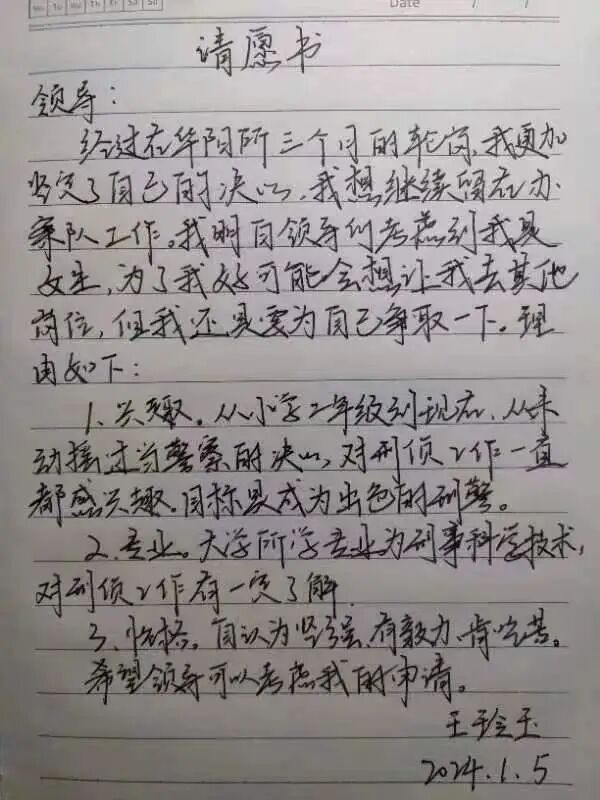 Mo Tu We Th Fr Sa Su
Date / /
请愿书
领导：
经过在华阳所三个月的轮岗，我更加
坚定了自己的决心，我想继续留在办
案队工作。我明白领导们考虑到我是
女生，为了我好可能会想让我去其他
岗位，但我还是要为自己争取一下。理
由如下：
1.兴趣。从小学2年级到现在，从未
动摇过当警察的决心，对刑侦工作一直
都感兴趣。目标是成为出色的刑警。
2.专业。大学所学专业为刑事科学技术，
对刑侦工作有一定了解
3.性格。自认为坚强、有毅力、肯吃苦。
希望领导可以考虑我的申请。
王玉
2024.1.5